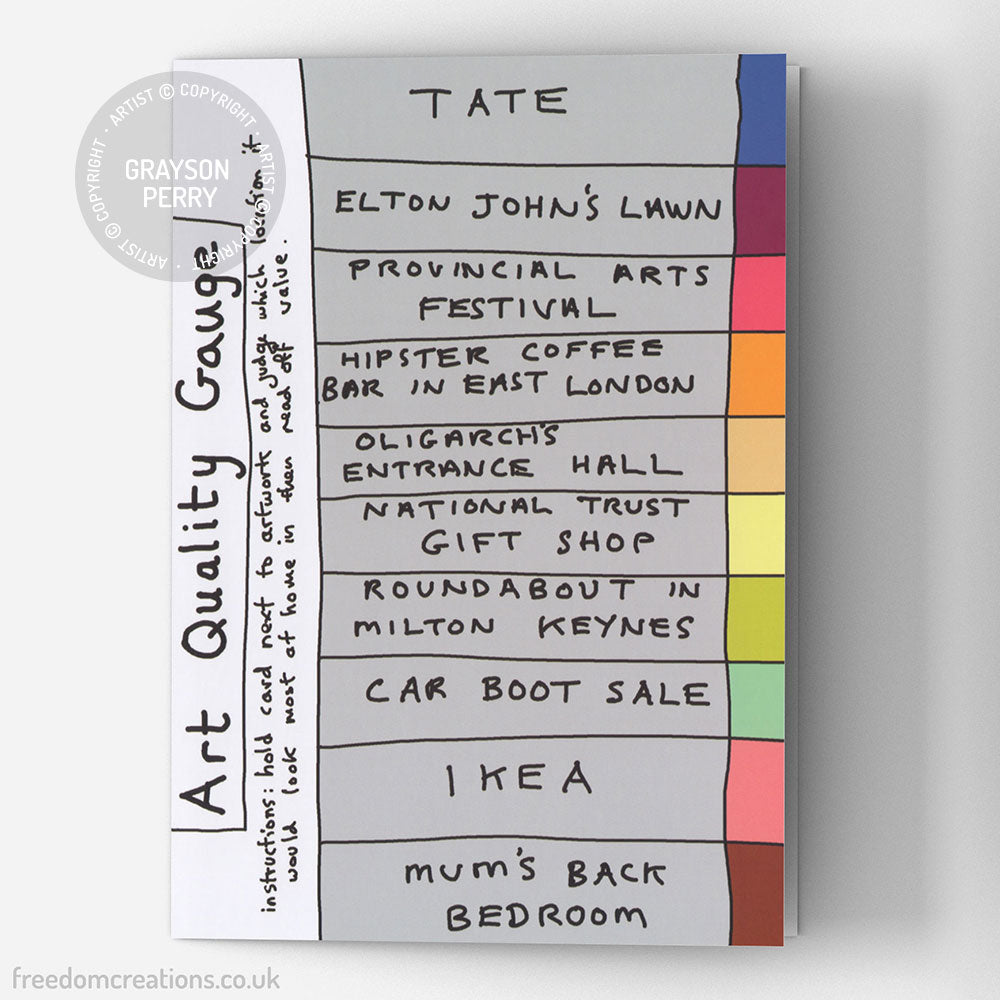 Art Quality Gauge
instructions: hold card next to artwork and judge which location it
would look most at home in then read off value.
TATE
ELTON JOHN'S LAWN
PROVINCIAL ARTS
FESTIVAL
HIPSTER COFFEE
BAR IN EAST LONDON
OLIGARCH'S
ENTRANCE HALL
NATIONAL TRUST
GIFT SHOP
ROUNDABOUT IN
MILTON KEYNES
CAR BOOT SALE
IKEA
MUM'S BACK
BEDROOM
ARTIST © COPYRIGHT · ARTIST © COPYRIGHT · ARTIST © COPYRIGHT ·
GRAYSON
PERRY
freedomcreations.co.uk